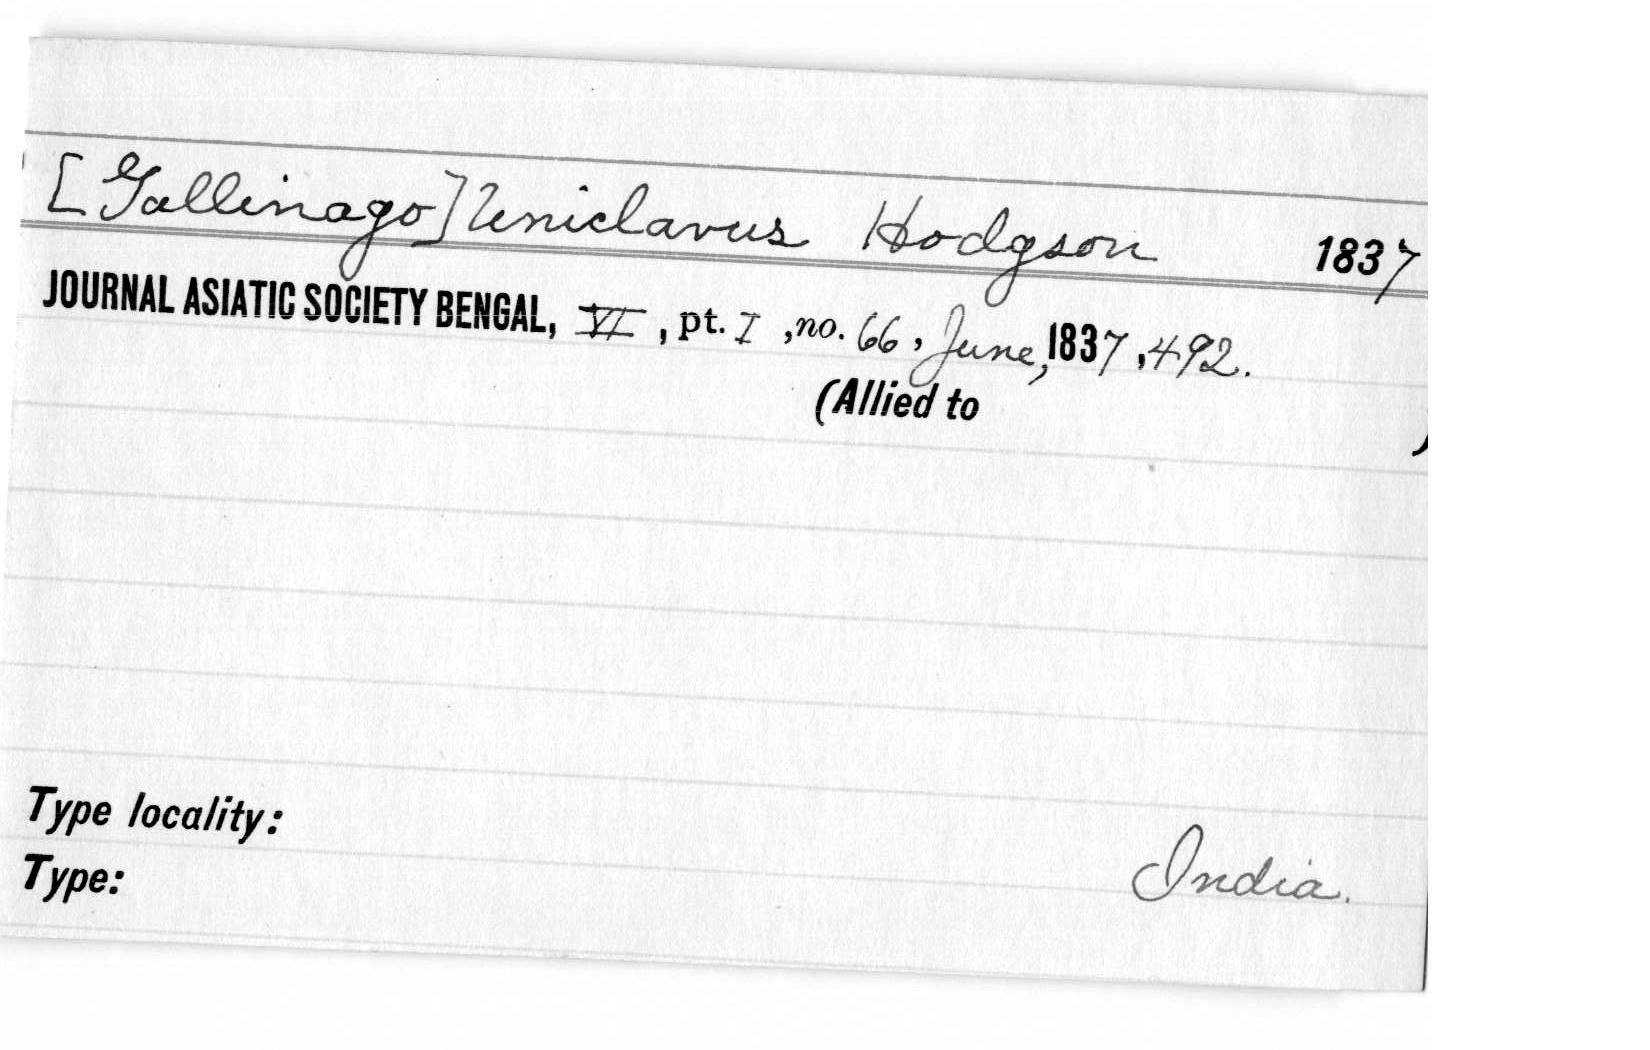 [Gallinago] Uniclavus Hodgson 1837
JOURNAL ASIATIC SOCIETY BENGAL, VI, pt. I, no. 66, June, 1837, 492.
(Allied to )
Type locality:
India.
Type: